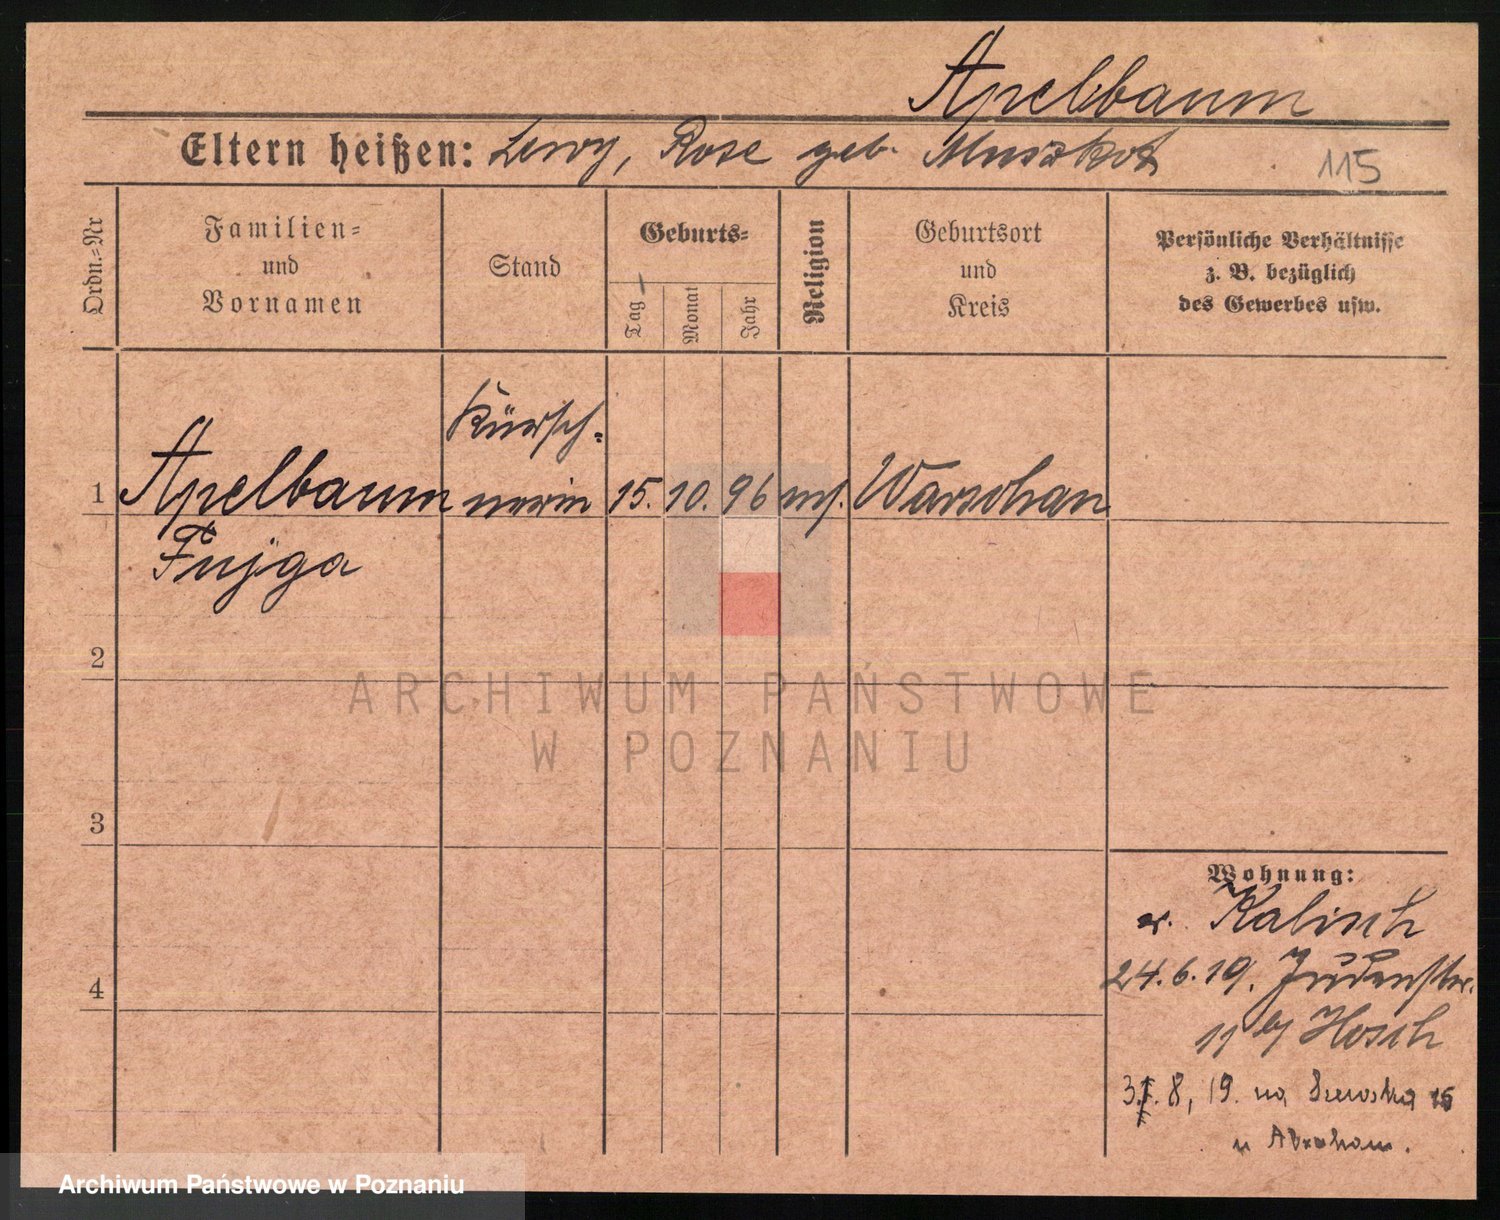 Apelbaum
Eltern heißen: Lewy, Rose geb. Muszkat
115
Ordn.=Nr
Familien=
und
Vornamen
Stand
Geburts=
Tag
Monat
Jahr
Religion
Geburtsort
und
Kreis
Persönliche Verhältnisse
z. B. bezüglich
des Gewerbes usw.
Kürsch=
1 Apelbaum nerin 15. 10. 96 mos. Warschau
Fajga
2
3
4
Wohnung:
v. Kalisch
24.6.19. Judenstr.
11 bj Hosch
8, 19. na 16
u Abraham.
ARCHIWUM PAŃSTWOWE
W POZNANIU
Archiwum Państwowe w Poznaniu